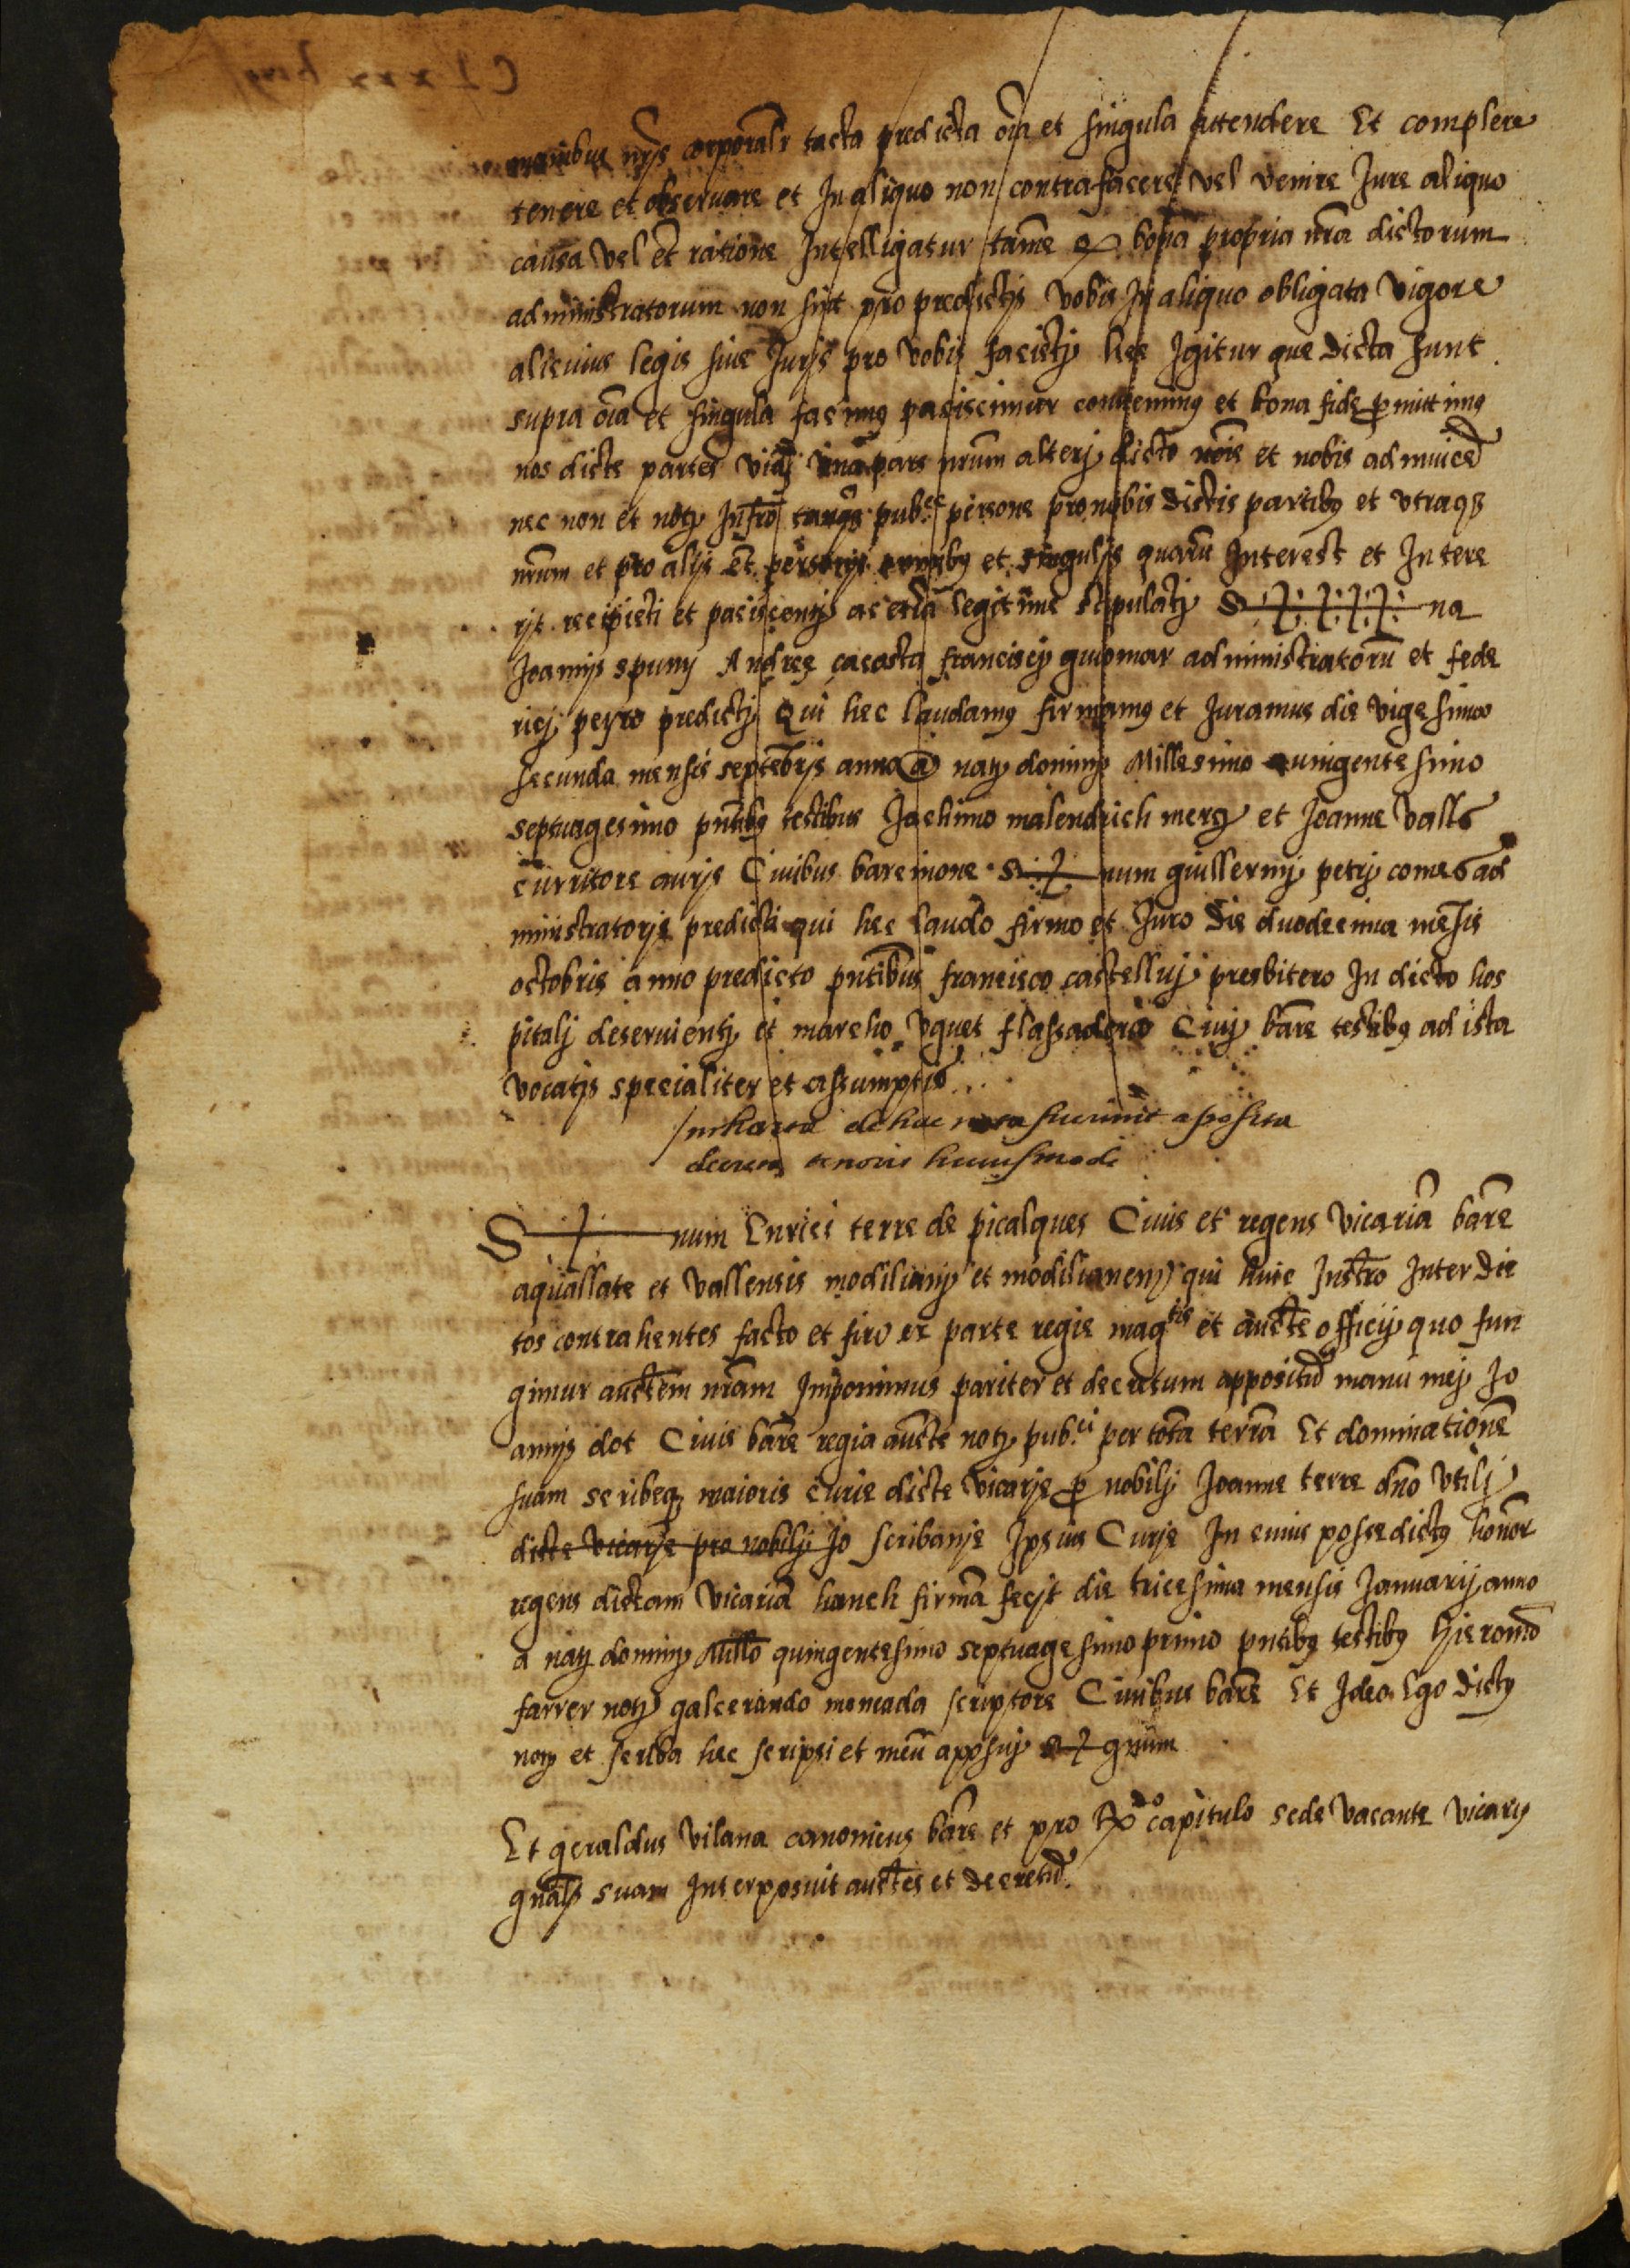 manibus nrjs corporalr tacta predicta oia et singula attendere Et complere
tenere et observare et In aliquo non contrafacere vel venire Jure aliquo
causa vel et ratione Intelligatur tame q bona propria nra dictorum
administratorum non sint pro predictis vobis In aliquo obligata vigore
alicuius legis sive Juris pro vobis facietj hec Igitur que dicta sunt
supra oia et singula facimus paciscimur convenimus et bona fide promittimus
nos dicte partes una pars nrum alterj dicto noie et nobis ad invicē
nec non et notj Infro tanq pub.ce persone pro nobis dictis partibus et utraqz
nrum et pro alijs et personis omnibus et singulis quaru Interest et Intere
rit recipieti et paciscentj ac etia legitime stipulatj S na
Joannis spunÿ Andree çacosta francisci guiomar administratoru et fede
ricj peyro predictj Qui hec laudamus firmamus et Juramus die vigesimo
secunda mensis septebris anno a natj dominj Millesimo quingentesimo
septuagesimo pntibus testibus Jachimo malendrich merc et Joanne valls
curritore auris Civibus barcinone S num guillermj petrj comes ad
ministratoris predicti qui hec laudo firmo et Juro die duodecima mesis
octobris anno predicto pntibus francisco castelluj presbitero In dicto hos
pitalj deservientj et marcho uguet flassaderio Civj bare testibus ad ista
vocatis specialiter et assumptis
In de hac nota fuerunt aposita
decreta tenoris huiusmodi
S num Enrici terre de picalques Civis et regens vicaria bare
aquallate et vallensis modilianj et modilianensi qui huic Instro Inter dic
tos contrahentes facto et firo ex parte regie magtis et aucte officij quo fun
gimur auctem nram Imponimus pariter et decretum appositu manu mej Jo
annis dot Civis bare regia aucte notj pub.ci per tota terra Et dominatione
suam scribeqz maioris curie dicte vicarie p nobilj Joanne terre dno utilj
dicte vicarie pro nobilj Jo scribanie Ipsius Curie In cuius posse dictus honor
regens dictam vicaria hanch firma fecit die tricesima mensis Januarij anno
a natj dominj Millo quingentesimo septuagesimo primo pntibus testibus Hieronio
farrer notj galcerando moncada scriptore Civibus bare Et Ideo Ego dictus
notj et scriba hec scripsi et meu apposuj S gnum
Et geraldus vilana canonicus bare et pro Rdo capitulo sede vacante vicarius
gnalis suam Interposuit auctes et decretu.